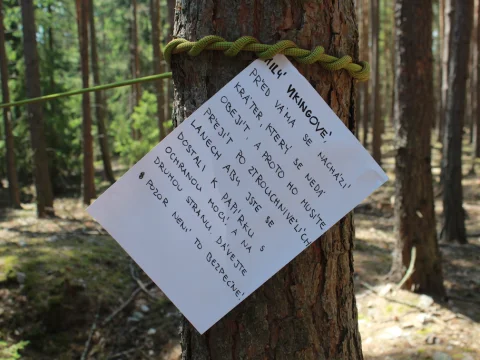 MILÝ VIKINGOVÉ,
PŘED VÁMA SE NACHÁZÍ
KRÁTER, KTERÝ SE NEDÁ
OBEJÍT, A PROTO HO MUSÍTE
PŘEJÍT PO ZTROUCHNIVĚLÍCH
LANECH ABY JSTE SE
DOSTALI K PAPÍRKU S
OCHRANOU MOCÍ A NA
DRUHOU STRANU, DÁVEJTE
POZOR NENÍ TO BEZPEČNÉ